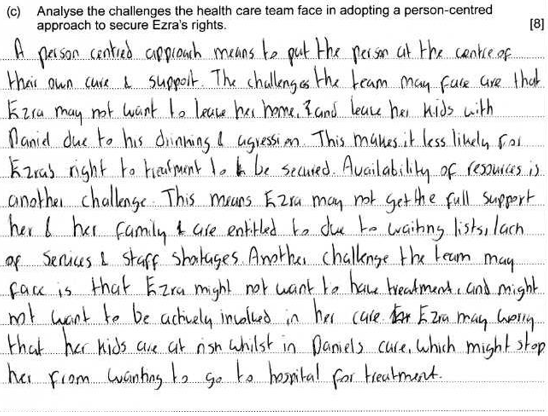 (c) Analyse the challenges the health care team face in adopting a person-centred
approach to secure Ezra's rights. [8]
A person centred approach means to put the person at the centre of
their own care & support. The challenges the team may face are that
Ezra may not want to leave her home, & and leave her kids with
Daniel due to his drinking & agression. This makes it less likely for
Ezra's right to treatment to be secured. Availability of resources is
another challenge. This means Ezra may not get the full support
her & her family & are entitled to due to waiting lists, lack
of services & staff shortages. Another challenge the team may
face is that Ezra might not want to have treatment, and might
not want to be actively involved in her care. Ezra may worry
that her kids are at risk whilst in Daniels care, which might stop
her from wanting to go to hospital for treatment.